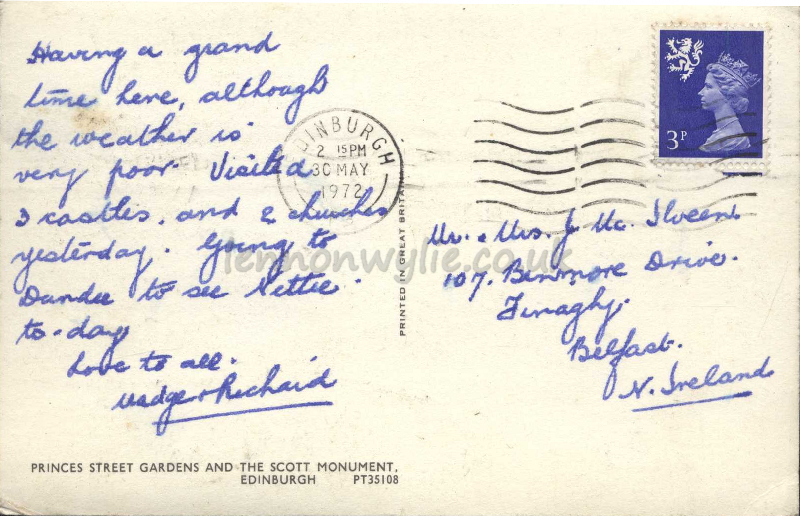 Having a grand
time here, although
the weather is
very poor. Visited
3 castles, and 2 churches
yesterday. Going to
Dundee to see Nettie.
to-day
Love to all.
Madge & Richard
PRINCES STREET GARDENS AND THE SCOTT MONUMENT,
EDINBURGH PT35108
EDINBURGH
2 15PM
30 MAY
1972
PRINTED IN GREAT BRITAIN
3P
Mr. & Mrs. J Mc. Ilveen
107. Benmore Drive.
Finaghy.
Belfast.
N. Ireland
lennonwylie.co.uk